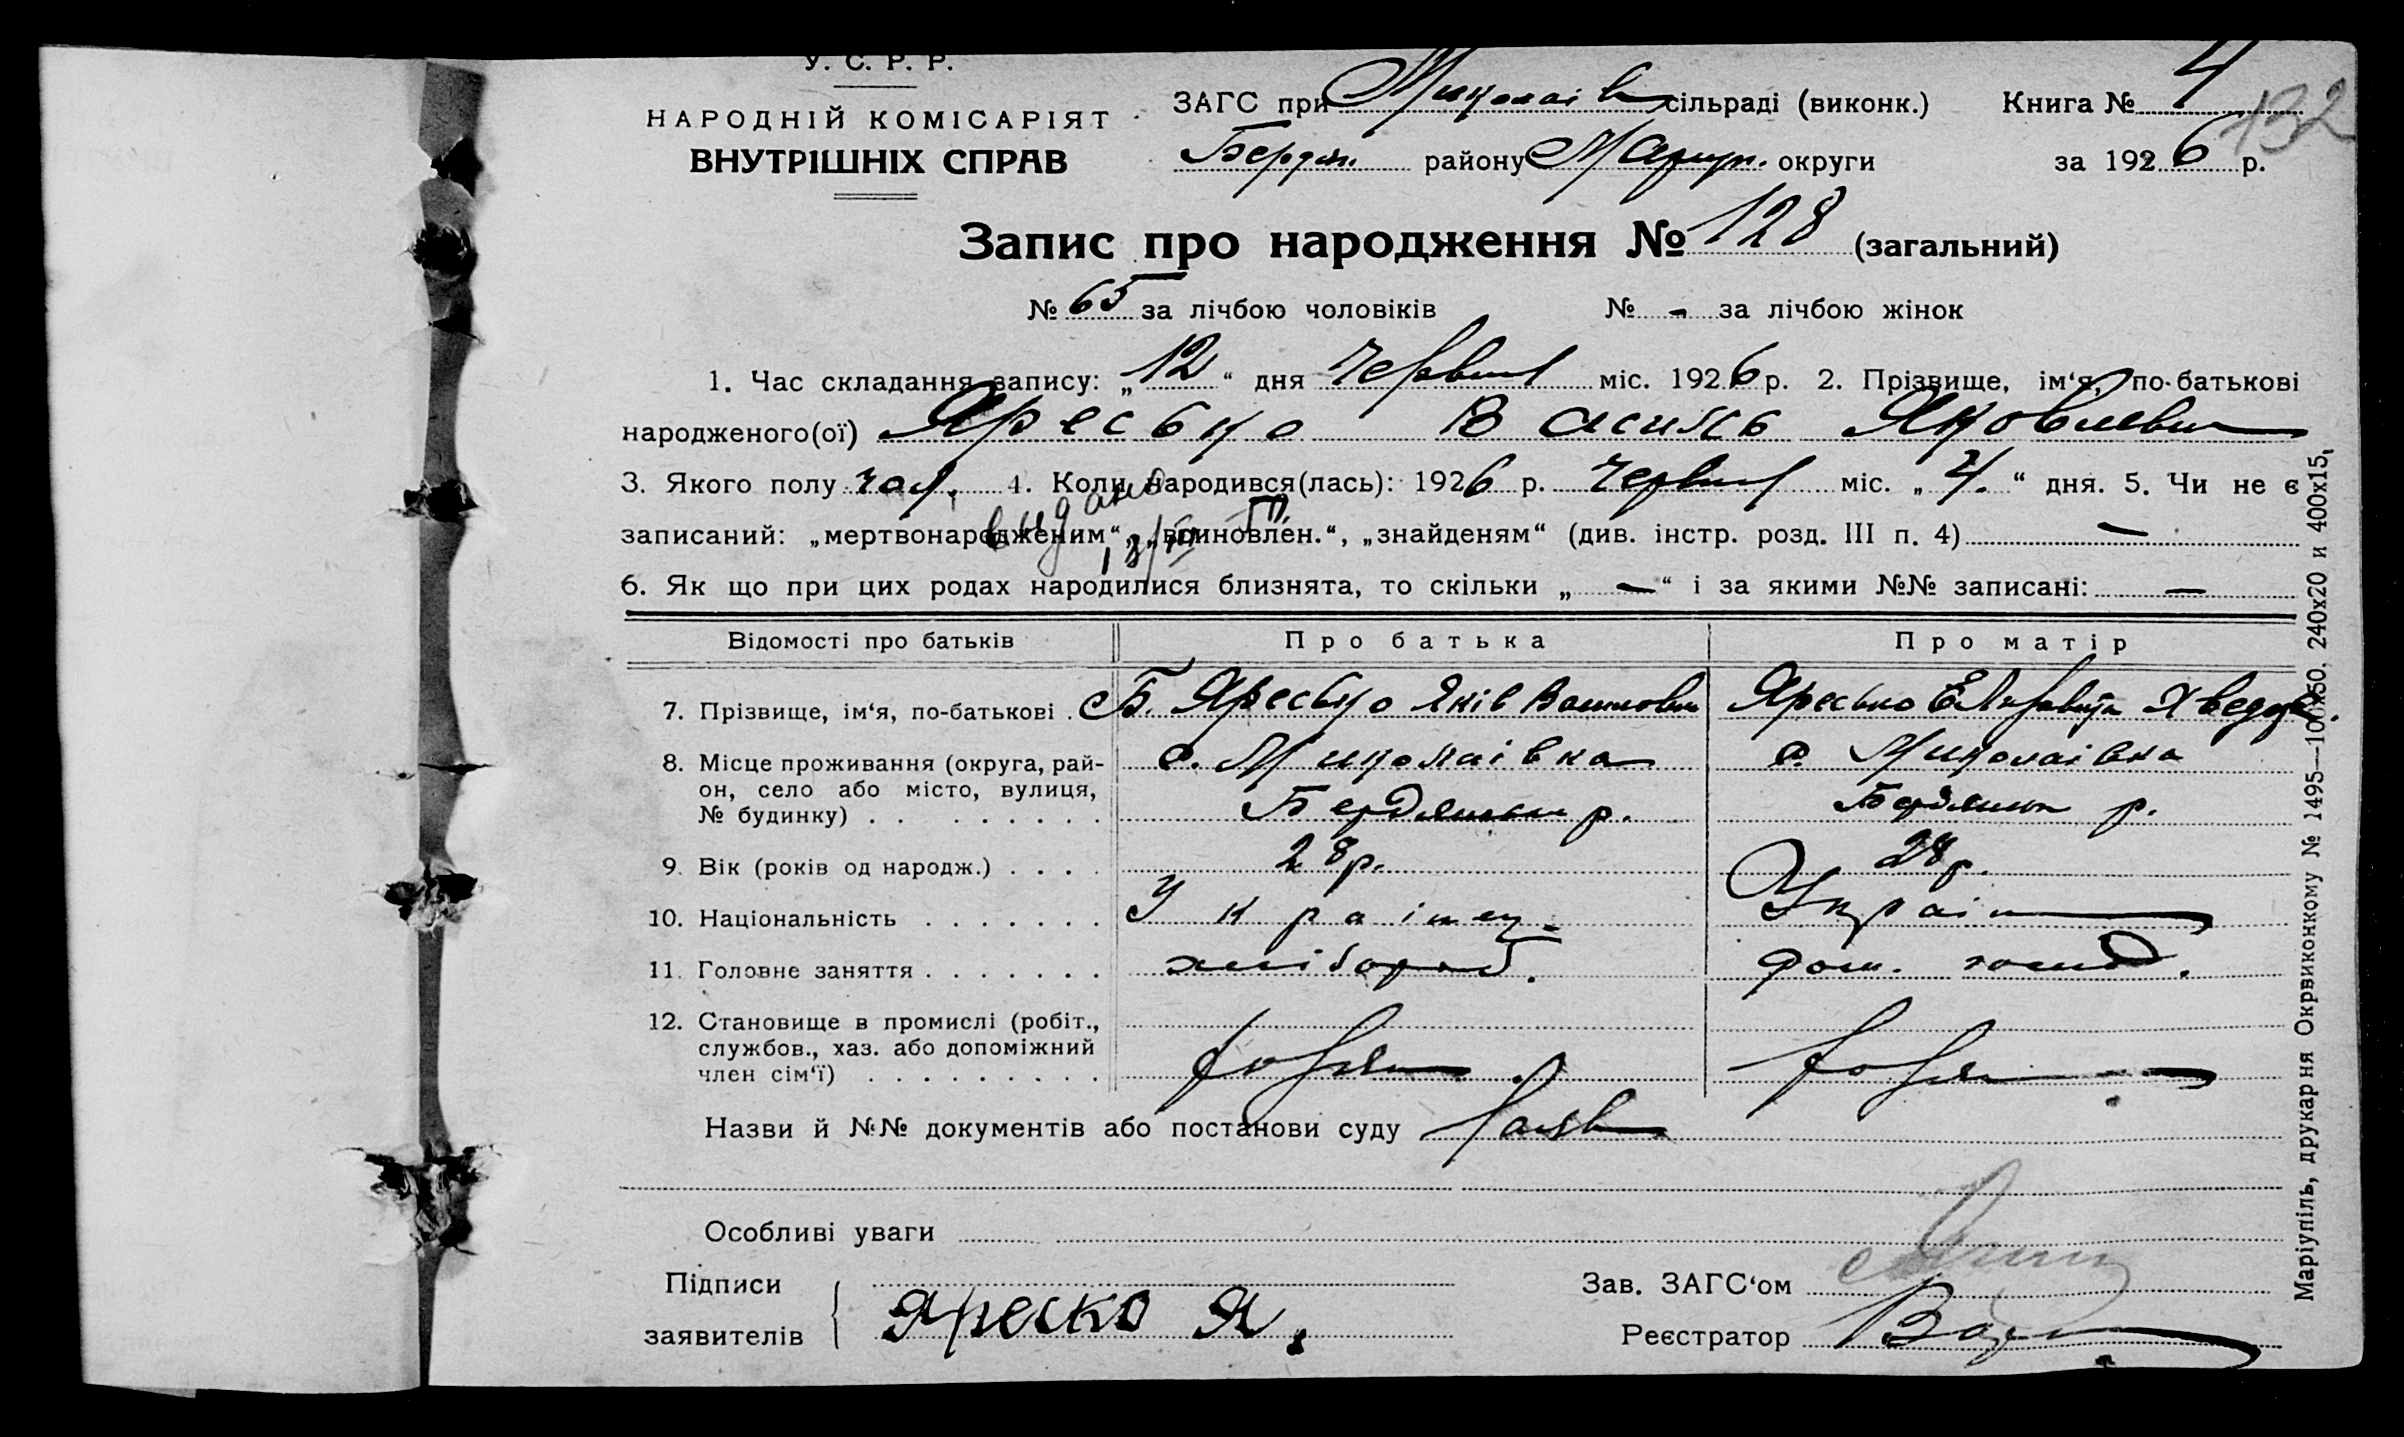 У. С. Р. Р.
НАРОДНІЙ КОМІСАРІЯТ
ВНУТРІШНІХ СПРАВ
ЗАГС при Миколаїв сільраді (виконк.) Книга № 4
132
Бердян. району Маріуп. округи за 1926 р.
Запис про народження № 128 (загальний)
№ 65 за лічбою чоловіків № - за лічбою жінок
1. Час складання запису: „12“ дня Червня міс. 1926 р. 2. Прізвище, ім‘я, по-батькові
народженого(ої) Яресько Василь Яковлевич
3. Якого полу чол. 4. Коли народився(лась): 1926 р. Червня міс. „4.“ дня. 5. Чи не є
видано
записаний: „мертвонародженим“, „вииновлен.“, „знайденям“ (див. інстр. розд. III п. 4) —
6. Як що при цих родах народилися близнята, то скільки „—“ і за якими №№ записані: —
Відомості про батьків Про батька Про матір
7. Прізвище, ім‘я, по-батькові . Яресько Яків Яресько
8. Місце проживання (округа, рай-
он, село або місто, вулиця,
№ будинку) . . . . . . . . .
с. Миколаівка с. Миколаівка
Бердянськ р. Бердянськ р.
9. Вік (років од народж.) . . . . 28 р. 28 р.
10. Національність . . . . . . . Украінец. Украін
11. Головне заняття . . . . . . . хлібороб. дом. господ.
12. Становище в промислі (робіт.,
службов., хаз. або допоміжний
член сім‘ї) . . . . . . . . .
Назви й №№ документів або постанови суду
Особливі уваги
Підписи
заявителів
Яреско Я.
Зав. ЗАГС‘ом
Реєстратор
Маріупіль, друкарня Окрвиконкому № 1495—100х50, 240х20 и 400х15,